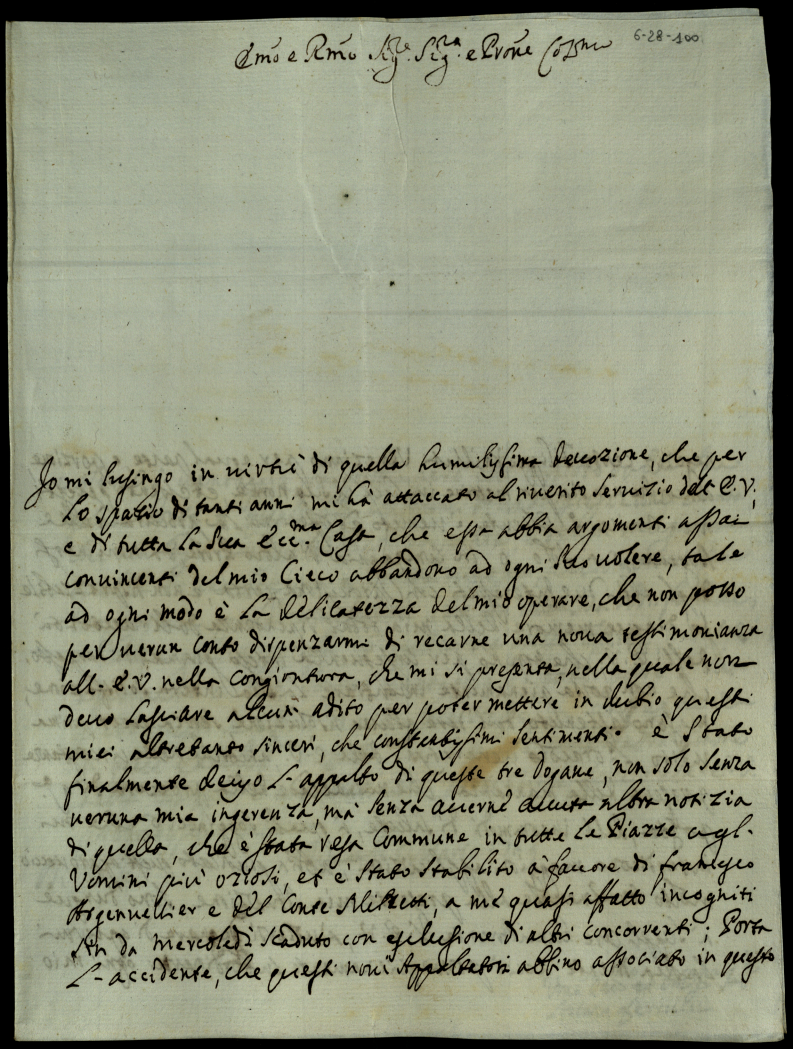 6-28-100
Emo e Rmo Sigre Sigra e Prone Colmo
Io mi lusingo in virtù di quella humilissima devozione, che per
lo spazio di tanti anni mi hà attaccato al riverito servizio dell' E.V.,
e di tutta la sua Eccma Casa, che essa abbia argomenti assai
convincenti del mio Cieco abbandono ad ogni suo volere, tale
ad ogni modo è la dèlicatezza del mio operare, che non posso
per verun conto dispenzarmi di recarne una nova testimonianza
all' E.V. nella congiontura, che mi si presenta, nella quale non
devo lasciare alcun adito per poter mettere in dubio questi
miei altretanto sinceri, che constantissimi sentimenti. è stato
finalmente deciso l'appalto di queste tre dogane, non solo senza
veruna mia ingerenza, mà senza averne avuta altra notizia
di quella, che è stata resa Commune in tutte le Piazze agl'
Vomini più oziosi, et è stato stabilito à favore di francesco
Argenvellier e dèl Conte , a mè quasi affatto incogniti
sin da mercoledì scaduto con esclusione di altri concorrenti; Porta
l'accidente, che questi novi Appaltatori abbino associato in questo